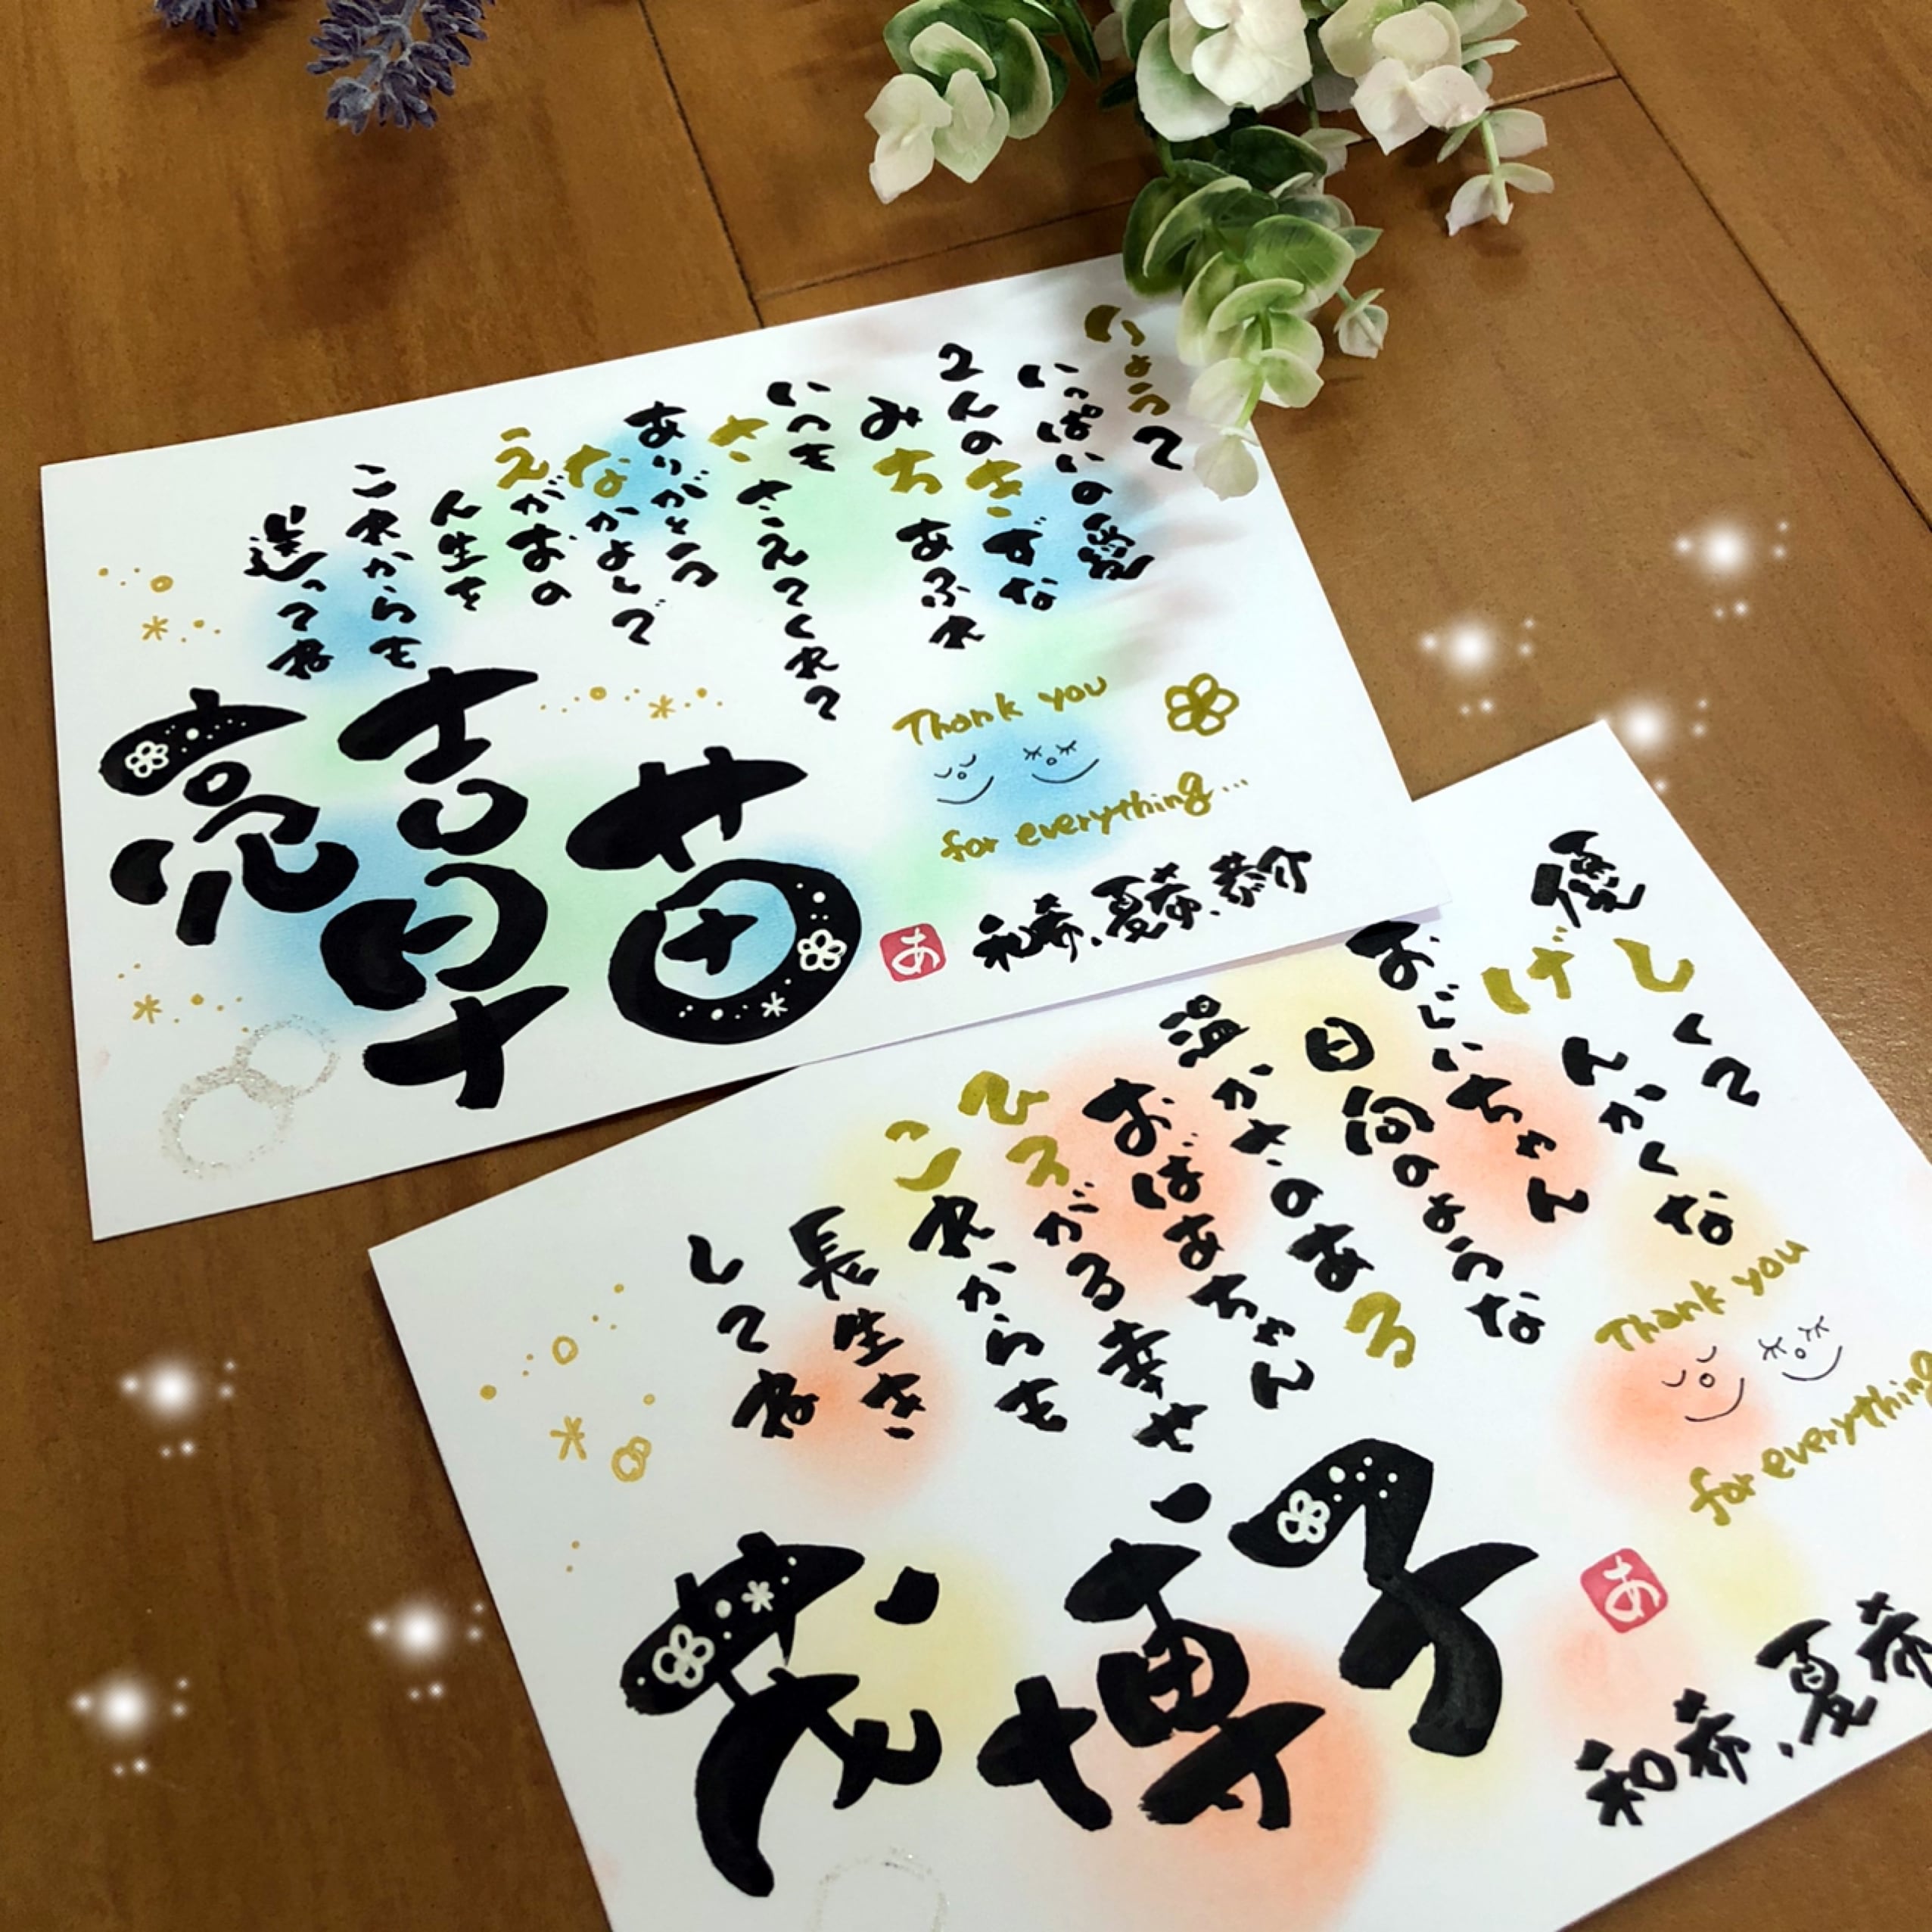 りょうて
いっぱいの愛
2人のきずな
みちあふれ
いつも
ささえてくれて
ありがとう
なかよしで
えがおの
人生を
これからも
送ってね
亮吉
早苗
Thank you
for everything...
和希、夏希、恭介
あ
優しくて
げんかくな
おじいちゃん
日向のような
温かさのある
おばあちゃん
ひろがる幸せ
これからも
長生き
してね
茂
博子
Thank you
for everything
あ
和希、夏希